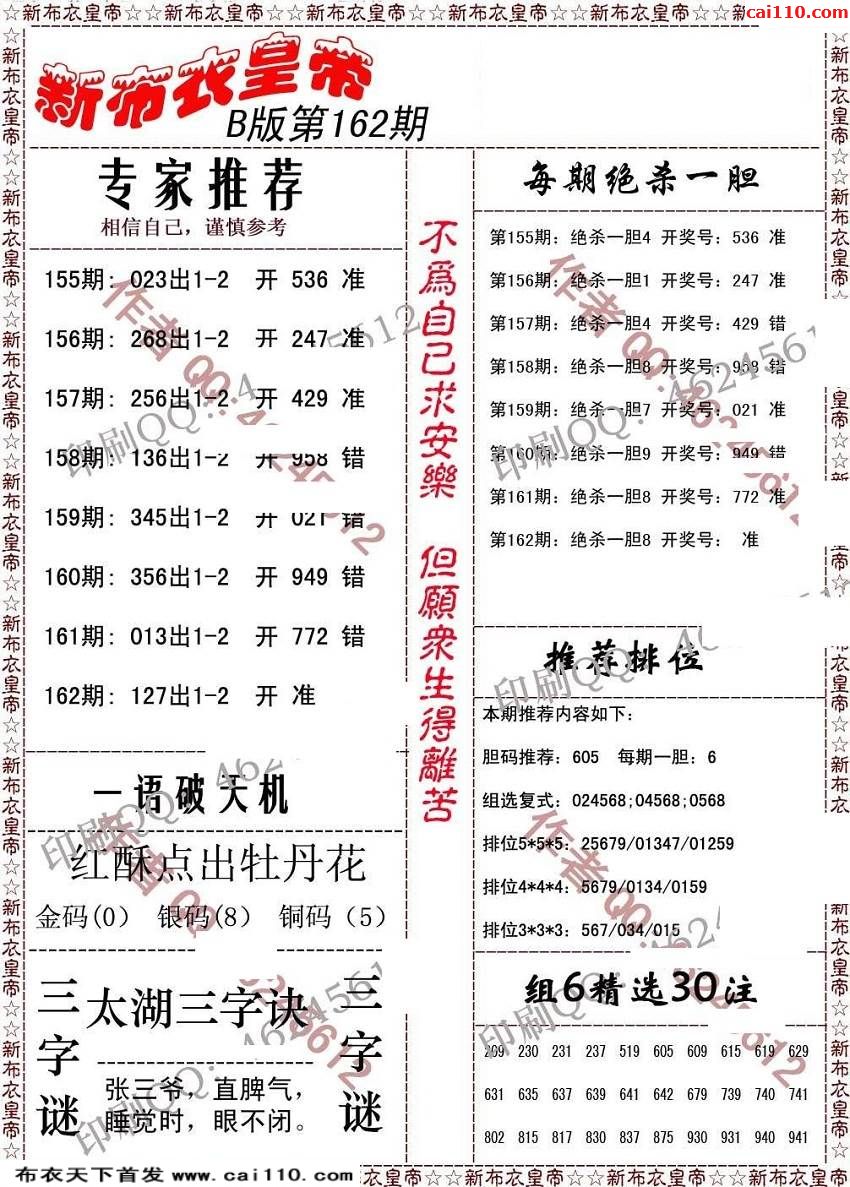 ☆☆新布衣皇帝☆☆新布衣皇帝☆☆新布衣皇帝☆☆新布衣皇帝☆☆新布衣皇帝☆☆
cai110.com
新布衣皇帝
B版第162期
专家推荐
相信自己，谨慎参考
155期: 023出1-2 开 536 准
156期: 268出1-2 开 247 准
157期: 256出1-2 开 429 准
158期: 136出1-2 开 958 错
159期: 345出1-2 开 021 错
160期: 356出1-2 开 949 错
161期: 013出1-2 开 772 错
162期: 127出1-2 开 准
一语破天机
红酥点出牡丹花
金码(0) 银码(8) 铜码（5）
三字谜
太湖三字诀
张三爷，直脾气，
睡觉时，眼不闭。
三字谜
不為自己求安樂 但願衆生得離苦
每期绝杀一胆
第155期: 绝杀一胆4 开奖号: 536 准
第156期: 绝杀一胆1 开奖号: 247 准
第157期: 绝杀一胆4 开奖号: 429 错
第158期: 绝杀一胆8 开奖号: 958 错
第159期: 绝杀一胆7 开奖号: 021 准
第160期: 绝杀一胆9 开奖号: 949 错
第161期: 绝杀一胆8 开奖号: 772 准
第162期: 绝杀一胆8 开奖号: 准
推荐排位
本期推荐内容如下:
胆码推荐: 605 每期一胆: 6
组选复式: 024568;04568;0568
排位5*5*5: 25679/01347/01259
排位4*4*4: 5679/0134/0159
排位3*3*3: 567/034/015
组6精选30注
209 230 231 237 519 605 609 615 619 629
631 635 637 639 641 642 679 739 740 741
802 815 817 830 837 875 930 931 940 941
作者QQ:
印刷QQ:
布衣天下首发 www.cai110.com
☆☆新布衣皇帝☆☆新布衣皇帝☆☆新布衣皇帝☆☆